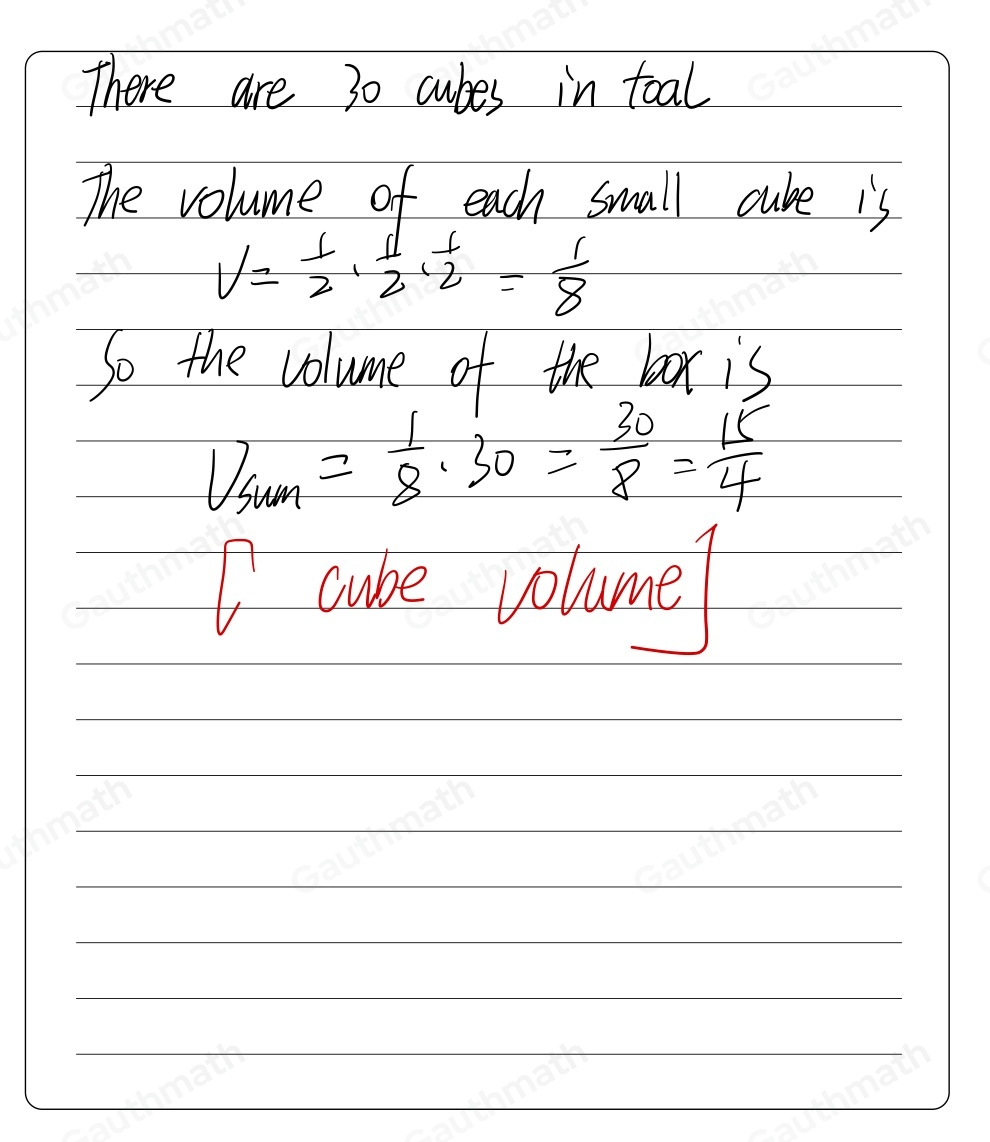 There are 30 cubes in toal
The volume of each small cube is
V = 1/2 · 1/2 · 1/2 = 1/8
So the volume of the box is
Vsum = 1/8 · 30 = 30/8 = 15/4
[ cube volume ]
Gauthmath